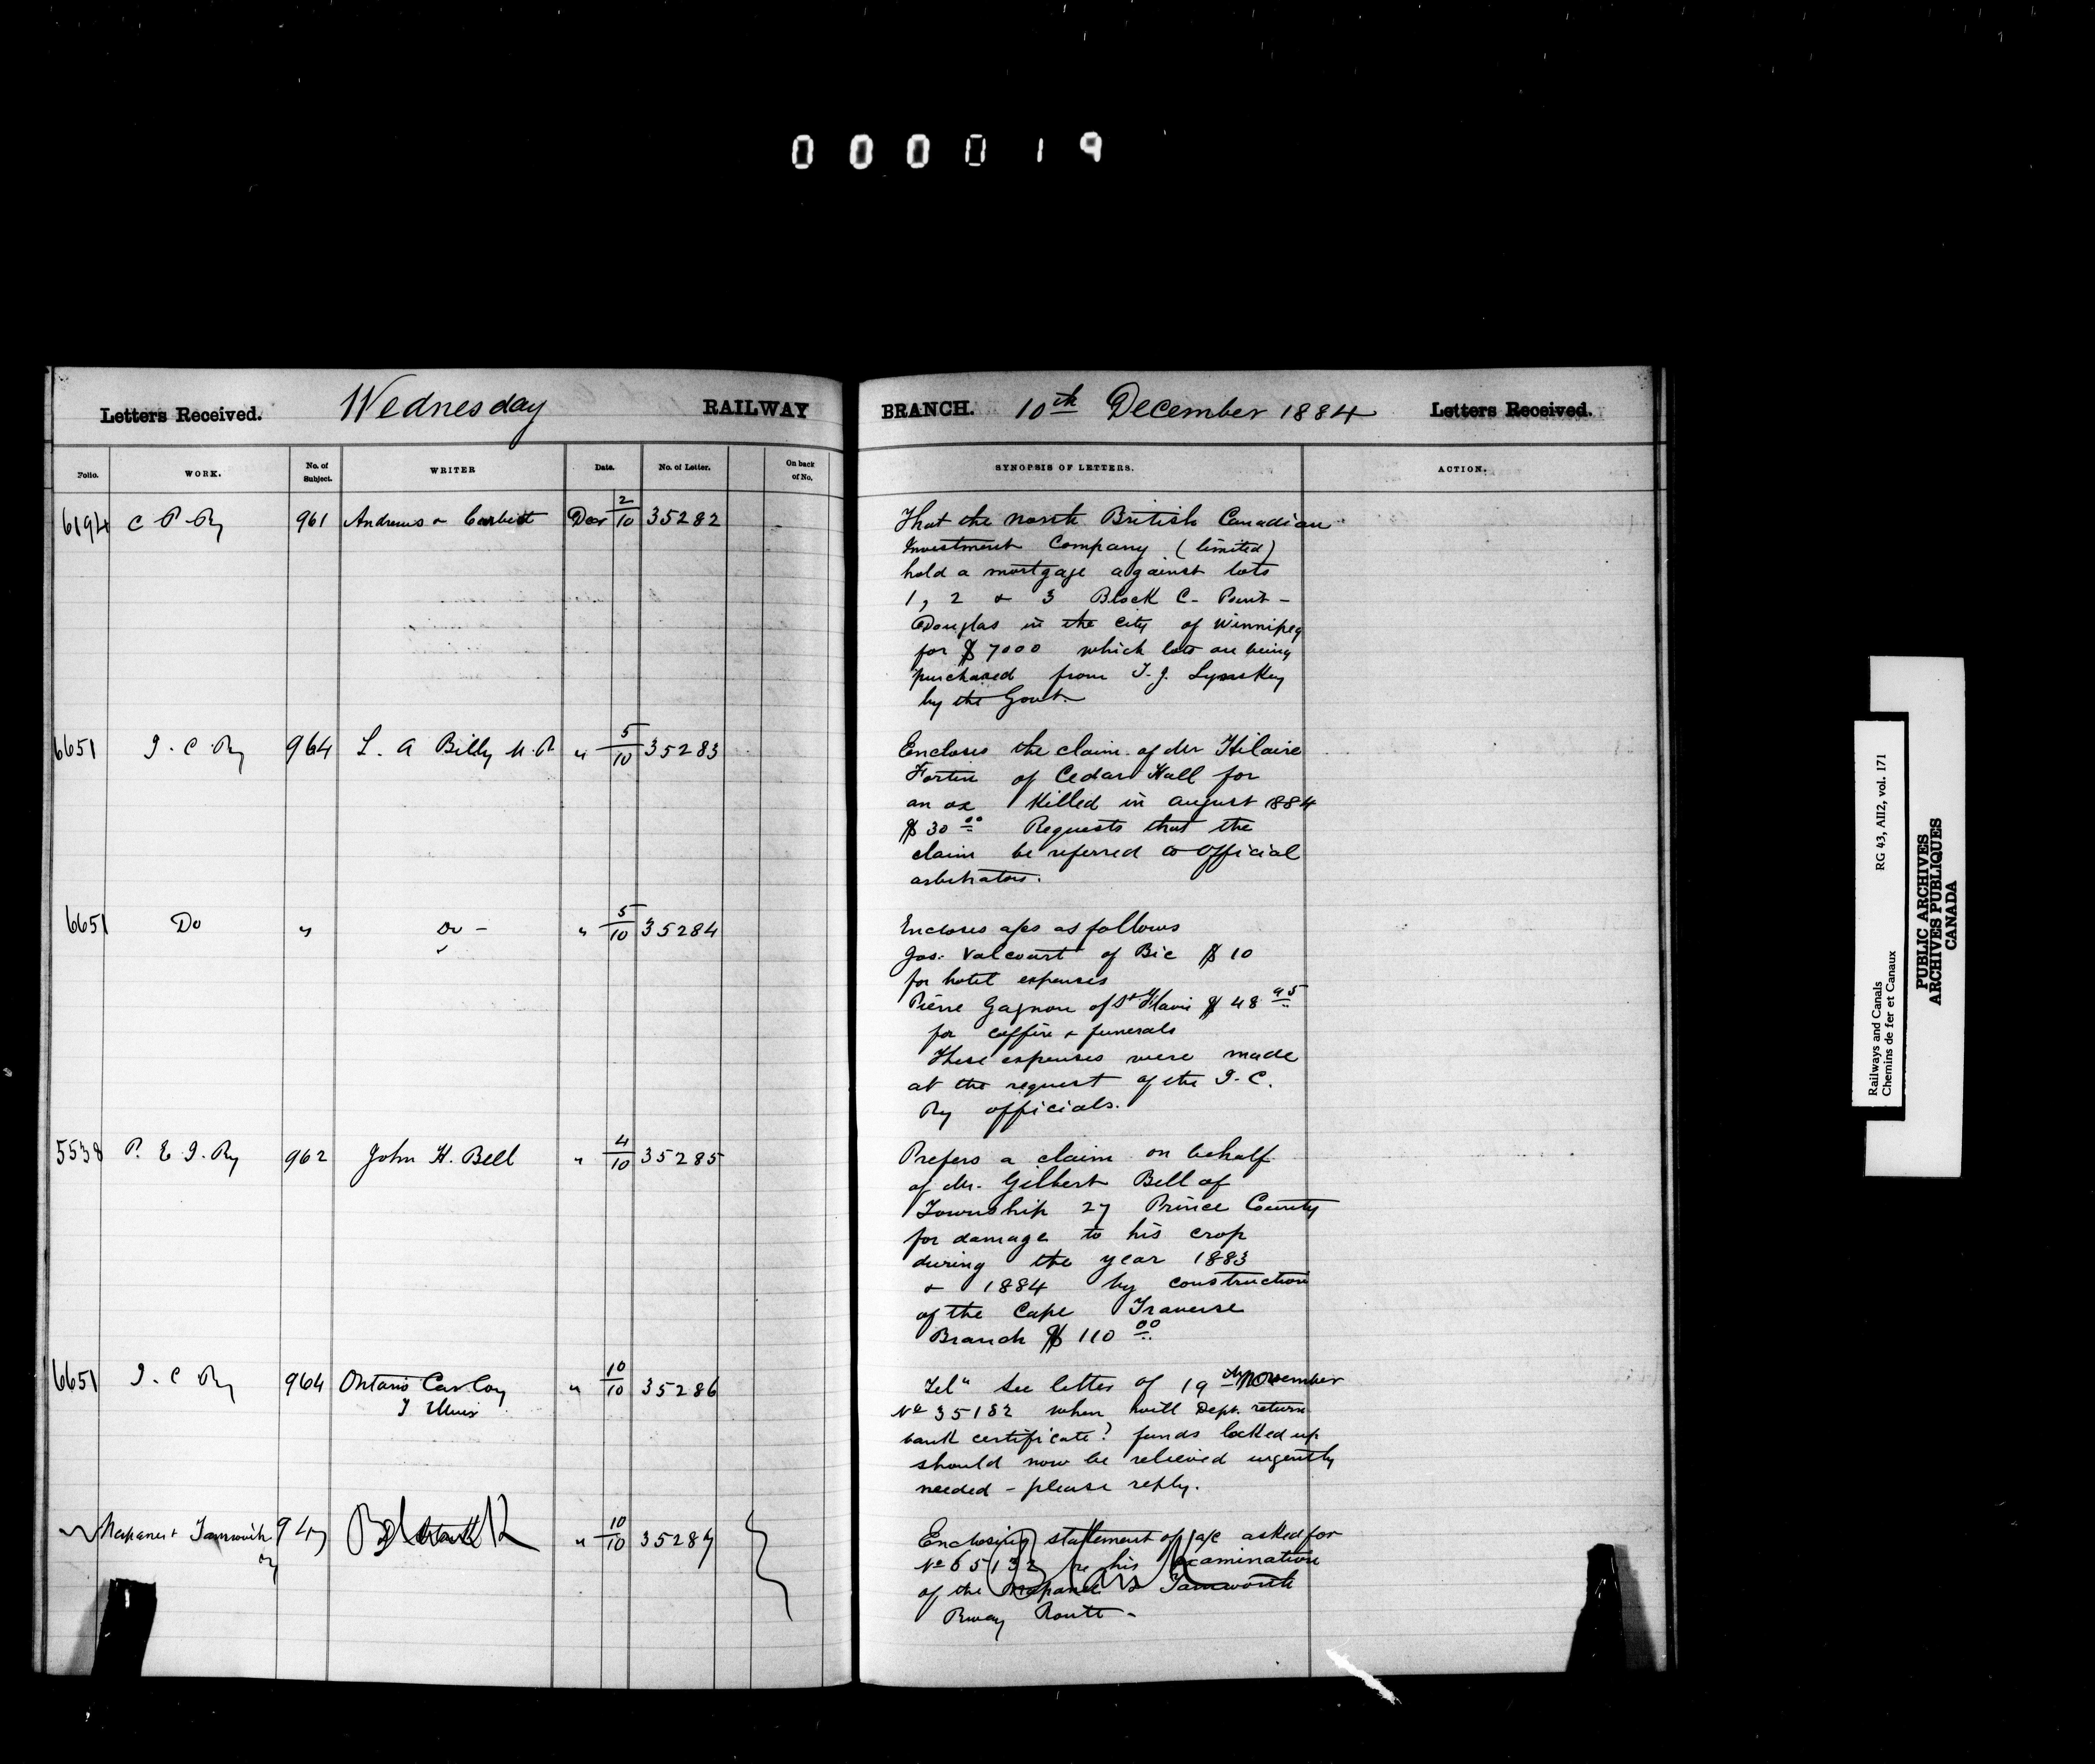 000019
Letters Received. Wednesday RAILWAY BRANCH. 10th December 1884 Letters Received.
Folio. WORK. No. of Subject. WRITER Date. No. of Letter. On back of No. SYNOPSIS OF LETTERS. ACTION.
6194 C P Ry 961 Andrews & Corbett Dec 2/10 35282 That the North British Canadian
Investment Company (limited)
hold a mortgage against lots
1, 2 & 3 Block C- Point-
Douglas in the City of Winnipeg
for $7000 which lots are being
purchased from T. J.
by the Govt.
6651 I. C Ry 964 L. A Billy M.P. " 5/10 35283 Encloses the claim of Mr Hilaire
Fortin of Cedar Hall for
an ox killed in August 1884
$30 00 Requests that the
claim be referred to Official
arbitrators.
6651 Do " Do - " 5/10 35284 Encloses a/cs as follows
Jos. Valcourt of Bic $10
for hotel expenses
Pierre Gagnon of St Flavie $48 95
for coffin & funerals
These expenses were made
at the request of the I.C.
Ry officials.
5538 P. E I. Ry 962 John H. Bell " 4/10 35285 Prefers a claim on behalf
of Mr. Gilbert Bell of
Township 27 Prince County
for damage to his crop
during the year 1883
& 1884 by construction
of the Cape Traverse
Branch $110 00
6651 I. C Ry 964 Ontario Car Coy " 10/10 35286 Tel" See letter of 19th November
J Muir
No 35182 when will Dept. return
bank certificate? funds locked up
should now be relieved urgently
needed - please reply.
Napanee & Tamworth Ry 947 " 10/10 35287 Enclosing statement of a/c asked for
No 65132 re his examination
of the Napanee & Tamworth
Rway Route -
Railways and Canals RG 43, AII2, vol. 171
Chemins de fer et Canaux
PUBLIC ARCHIVES
ARCHIVES PUBLIQUES
CANADA